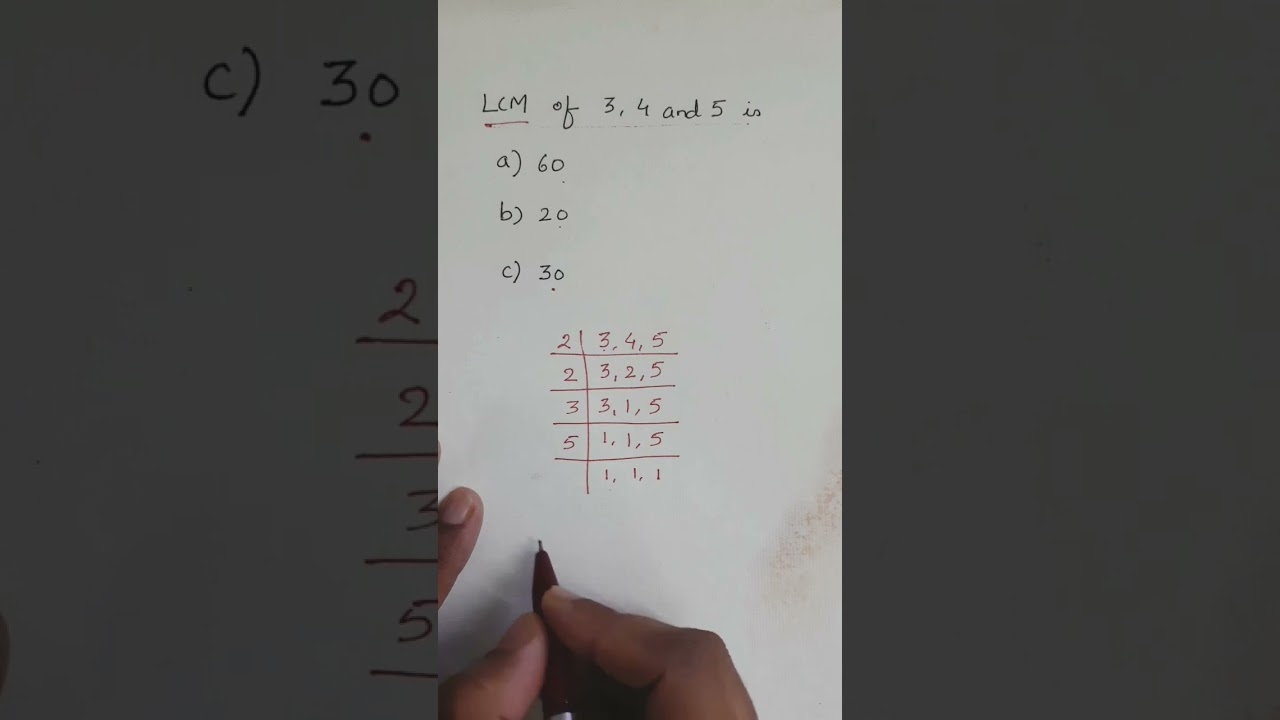 LCM of 3, 4 and 5 is
a) 60
b) 20
c) 30
2 | 3, 4, 5
2 | 3, 2, 5
3 | 3, 1, 5
5 | 1, 1, 5
| 1, 1, 1
c) 30
2
2
3
5